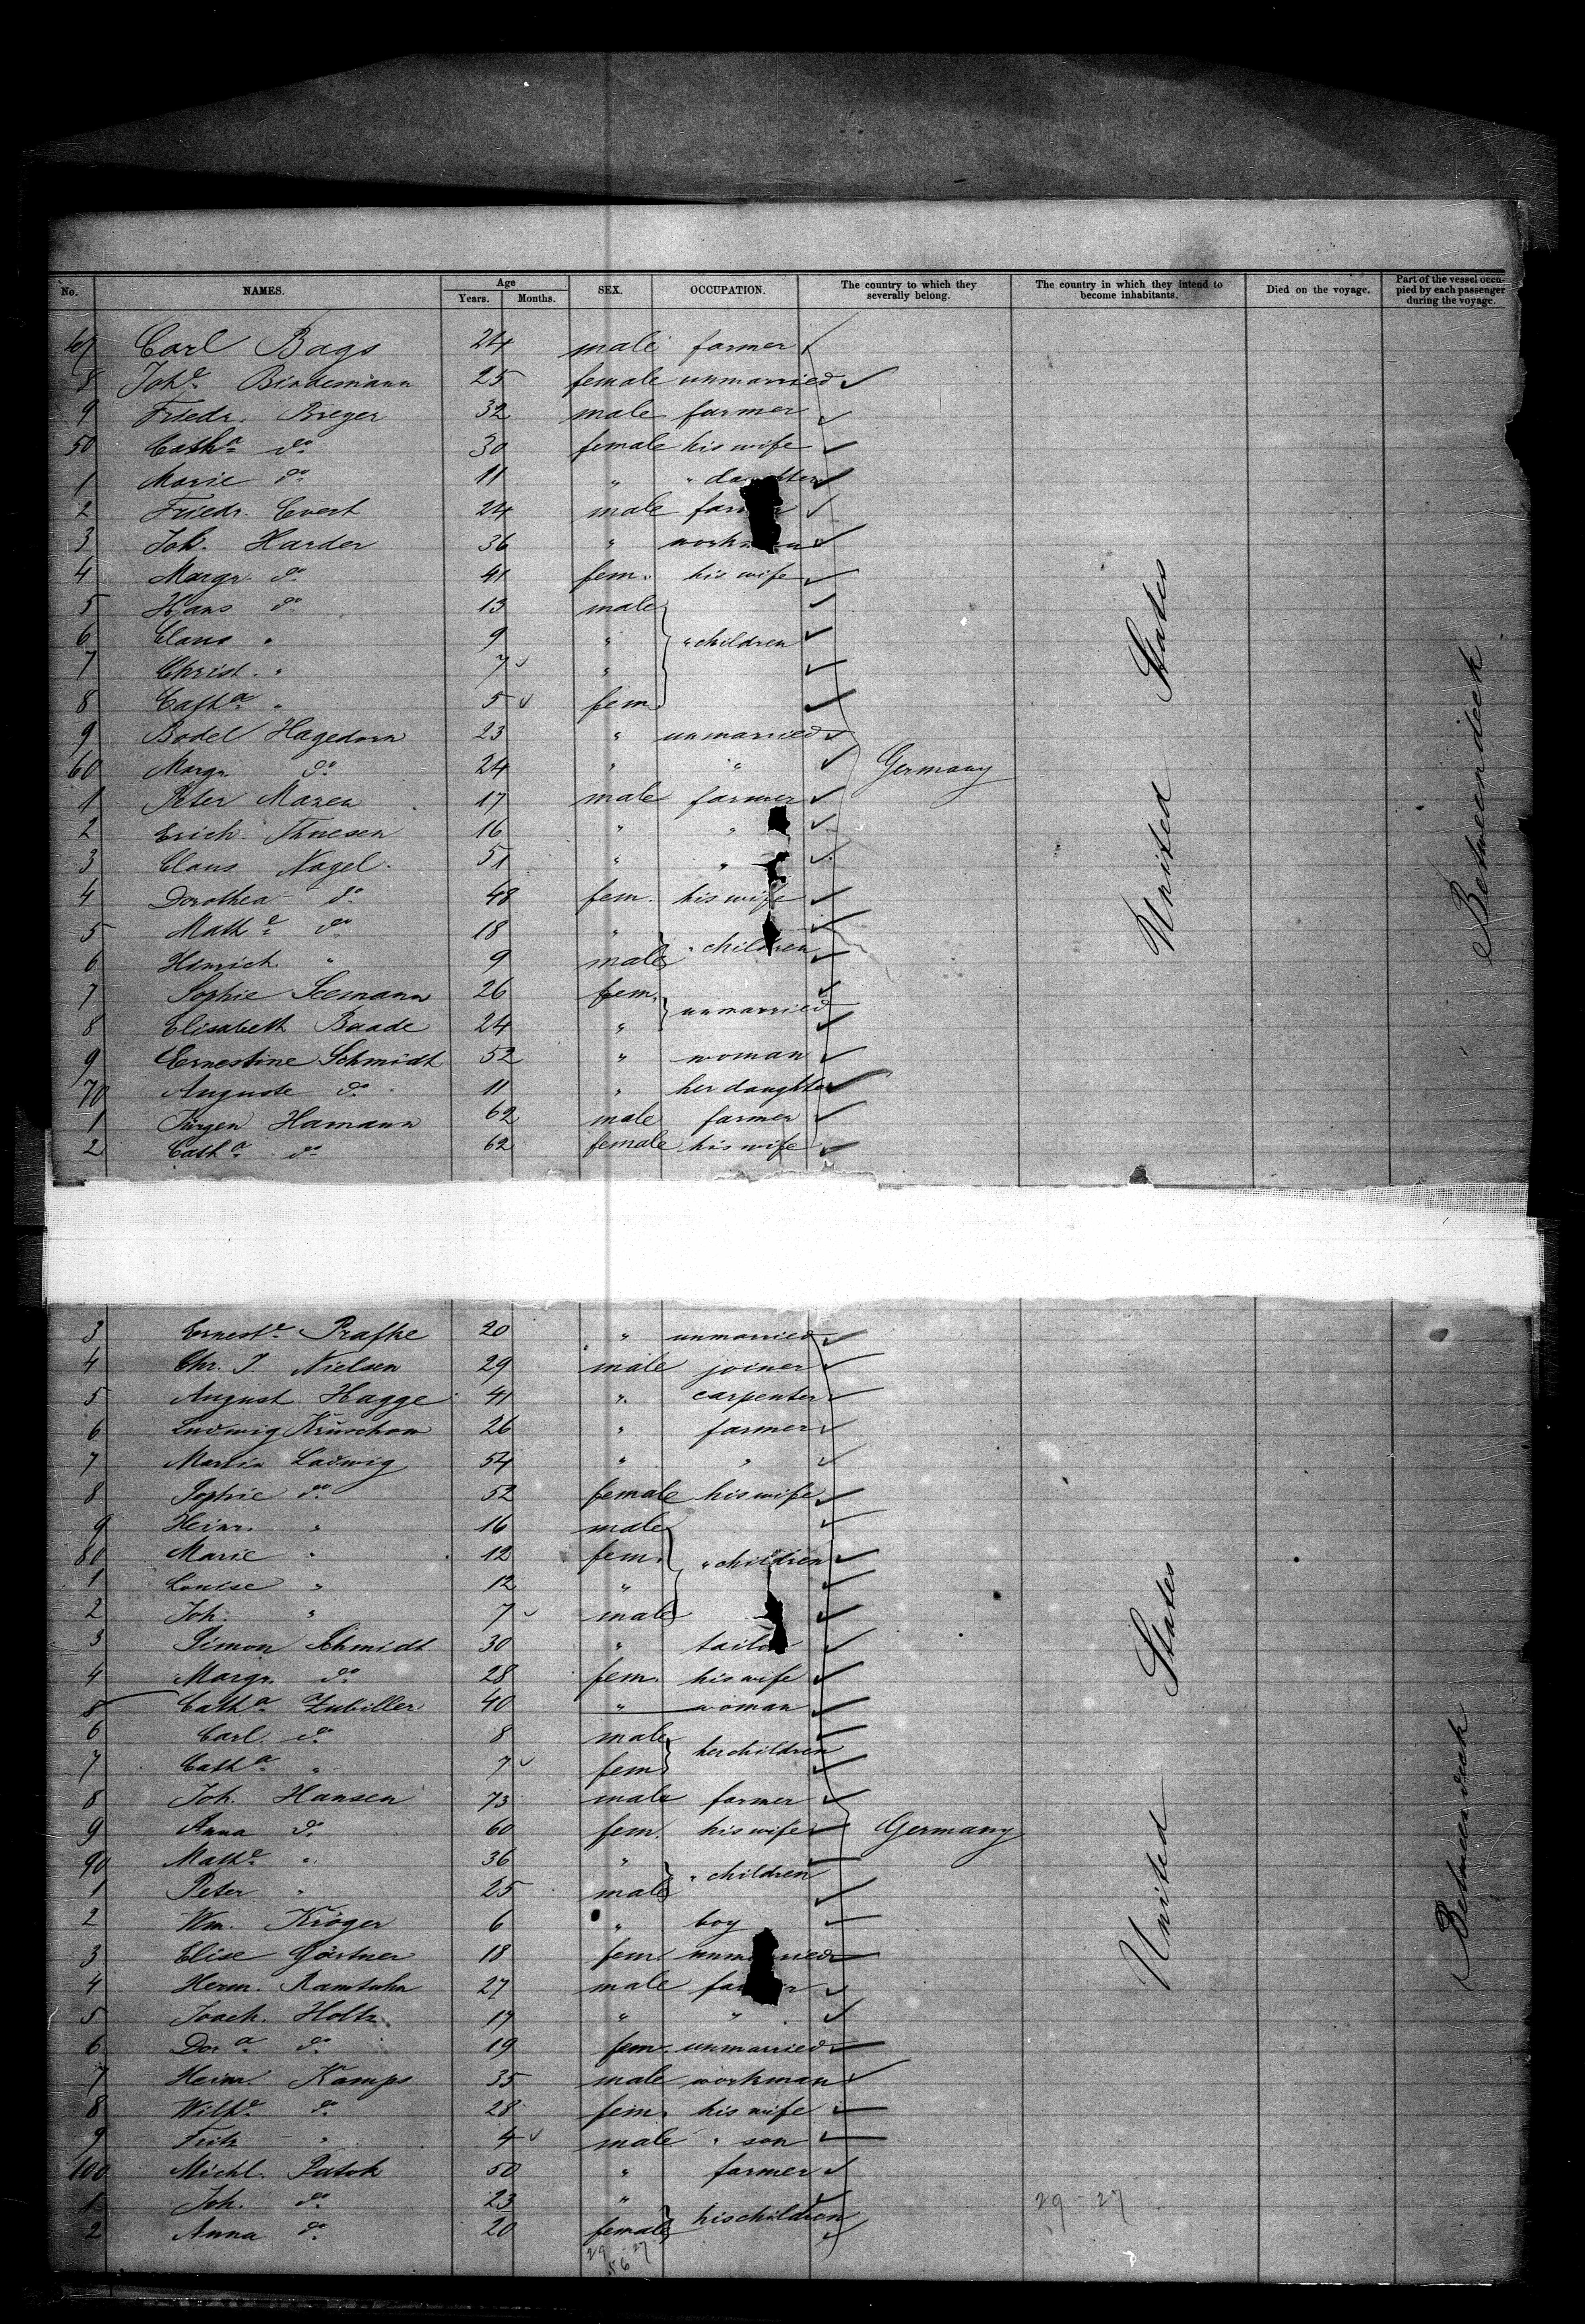 No. NAMES. Age Years. Months. SEX. OCCUPATION. The country to which they severally belong. The country in which they intend to become inhabitants. Died on the voyage. Part of the vessel occupied by each passenger during the voyage.
47 Carl Bags 24 male farmer
8 Johe Bindemann 25 female unmarried
9 Friedr. Breger 32 male farmer
50 Catha do 30 female his wife
1 Marie do 11 " " daughter
2 Friedr. Evert 24 male farmer
3 Joh. Harder 36 " workman
4 Margr. do 41 fem. his wife
5 Hans do 13 male
6 Claus " 9 " " children
7 Christ. " 7 "
8 Catha " 5 fem
9 Bodel Hagedorn 23 " unmarried
60 Margr do 24 " " Germany
1 Peter Maren 17 male farmer
2 Erich Thuesen 16 " "
3 Claus Nagel 51 " "
4 Dorothea do 48 fem. his wife
5 Mathe do 18 "
6 Hinrich " 9 male " children
7 Sophie Seemann 26 fem.
8 Elisabeth Baade 24 " unmarried
9 Ernestine Schmidt 52 " woman
70 Auguste do 11 " her daughter
1 Jürgen Hamann 62 male farmer
2 Catha do 62 female his wife
United States
Betweendeck
3 Erneste Prafke 20 " unmarried
4 Chr. J Nielsen 29 male joiner
5 August Hagge 41 " carpenter
6 Ludwig Krüschow 26 " farmer
7 Martin Ladwig 54 " "
8 Sophie do 52 female his wife
9 Heinr. " 16 male
80 Marie " 12 fem. " children
1 Louise " 12 "
2 Joh. " 7 male
3 Simon Schmidt 30 " tailor
4 Margr. do 28 fem. his wife
5 Catha Zubiller 40 " woman
6 Carl do 8 male
7 Catha " 7 fem her children
8 Joh. Hansen 73 male farmer
9 Anna do 60 fem. his wife Germany
90 Mathe " 36 " " children
1 Peter " 25 male
2 Wm. Kröger 6 " boy
3 Elise Gärtner 18 fem. unmarried
4 Herm. Ramtuhn 27 male farmer
5 Joach. Holtz 17 " "
6 Dora do 19 fem. unmarried
7 Heinr Kamps 35 male workman
8 Wilhe do 28 fem. his wife
9 Fritz " 4 male " son
100 Michl. Patok 50 " farmer
1 Joh. do 23 "
2 Anna do 20 female his children
United States
Betweendeck
29 - 27
29 27
56